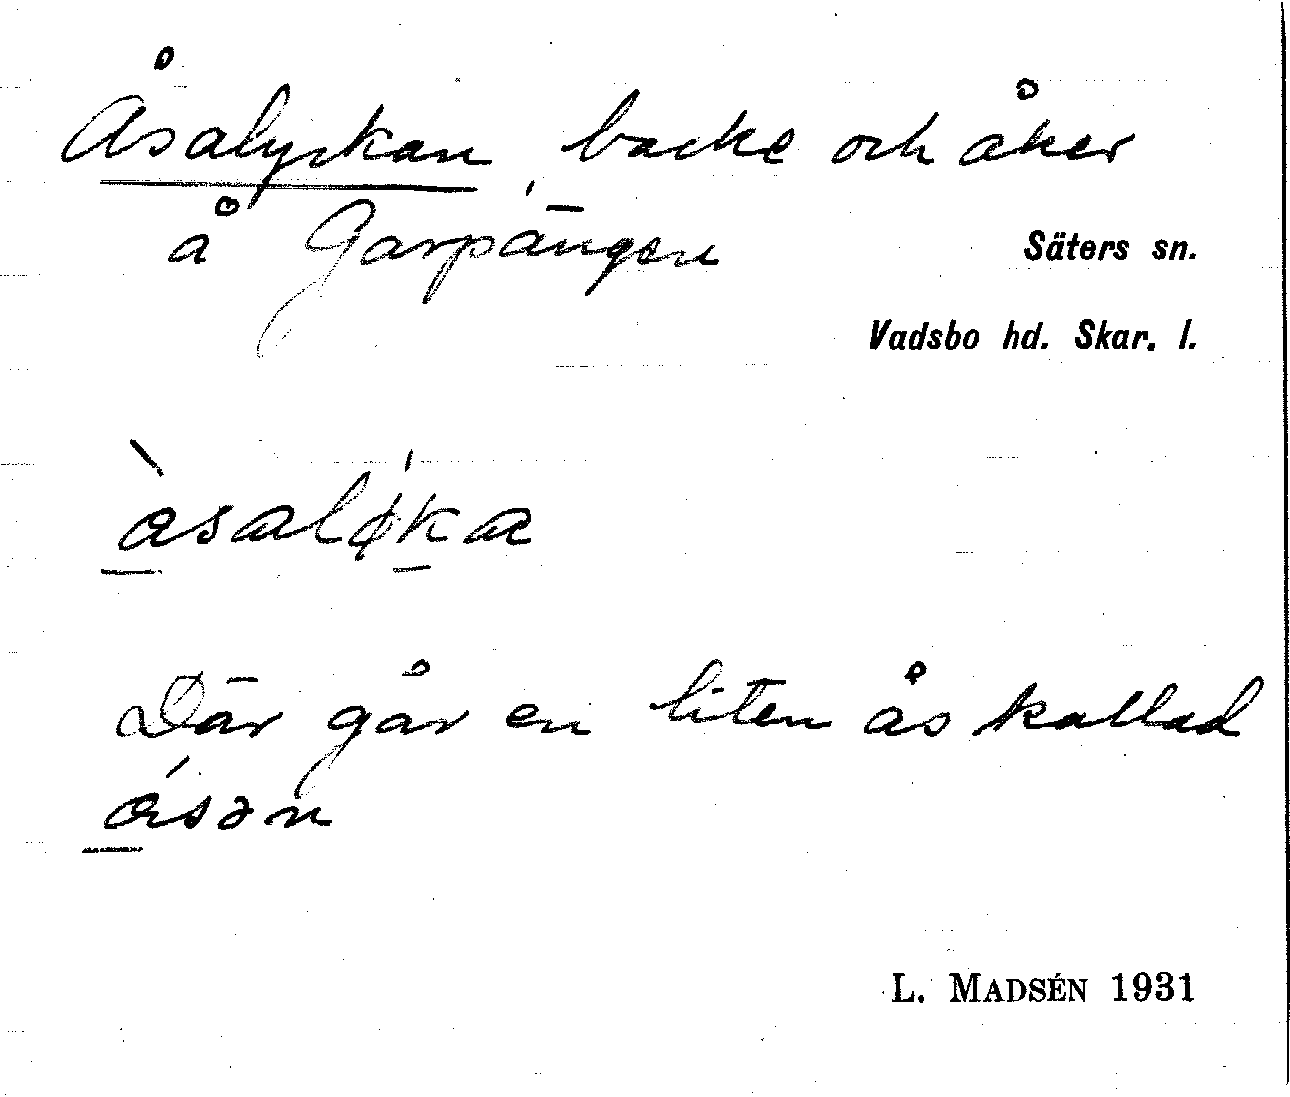 Åsalyckan, backe och åker
å Garpängen Säters sn.
Vadsbo hd. Skar. l.
àsalǿka
Där går en liten ås kallad
ásən
L. MADSÉN 1931